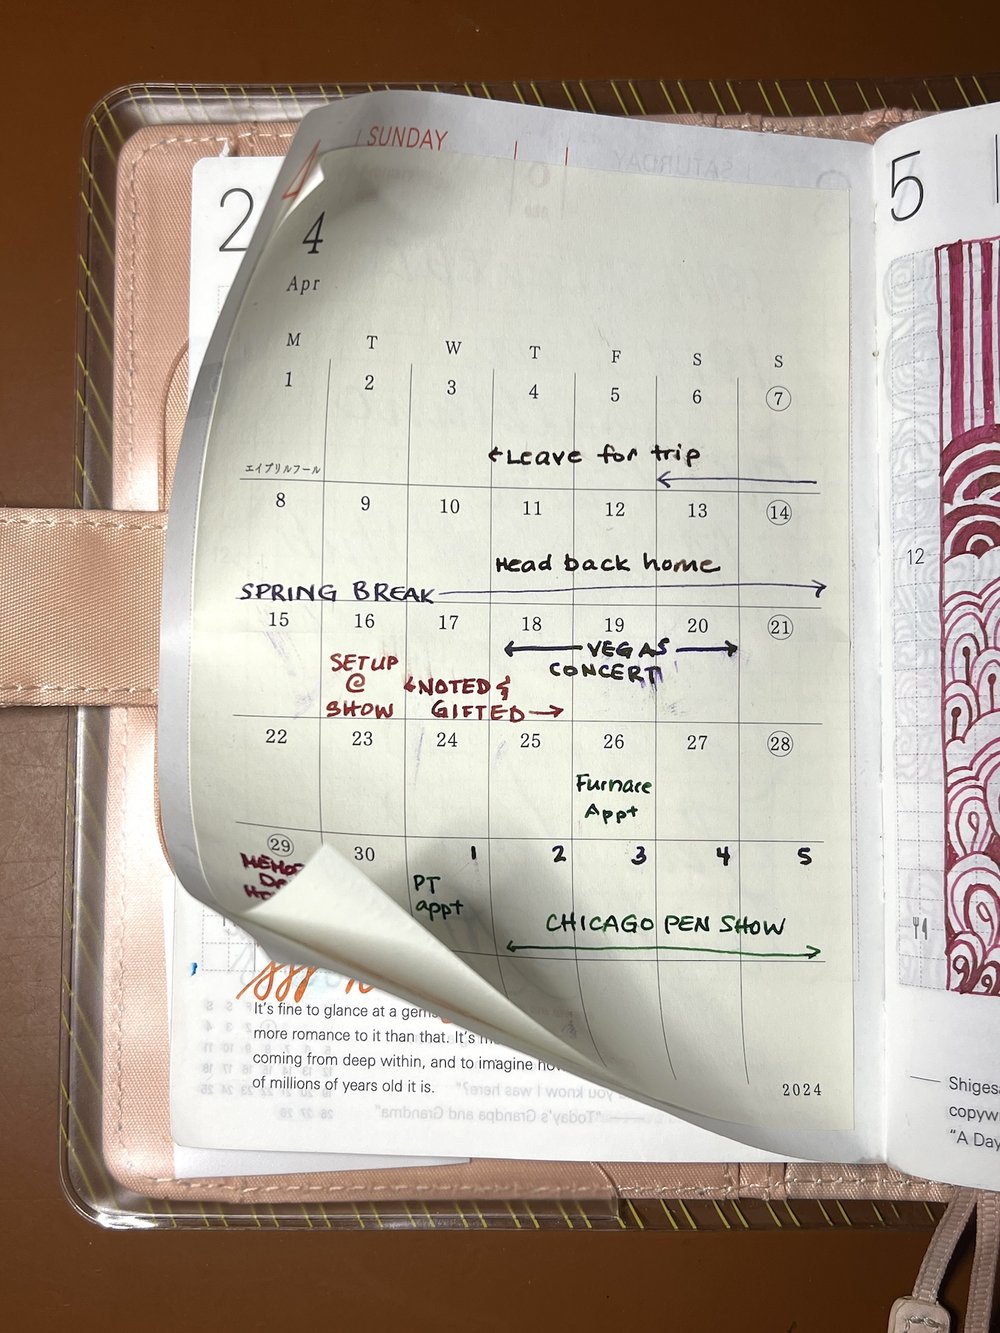 SUNDAY
2
4
4
Apr
M T W T F S S
1 2 3 4 5 6 7
←Leave for trip
エイプリルフール
8 9 10 11 12 13 14
Head back home
SPRING BREAK
15 16 17 18 19 20 21
← VEGAS →
CONCERT
SETUP
@
SHOW
←NOTED &
GIFTED→
22 23 24 25 26 27 28
Furnace
Appt
29 30 1 2 3 4 5
PT
appt
CHICAGO PEN SHOW
2024
It's fine to glance at a
more romance to it than that. It's
coming from deep within, and to imagine
of millions of years old it is.
5
12
Shiges
copyw
"A Day